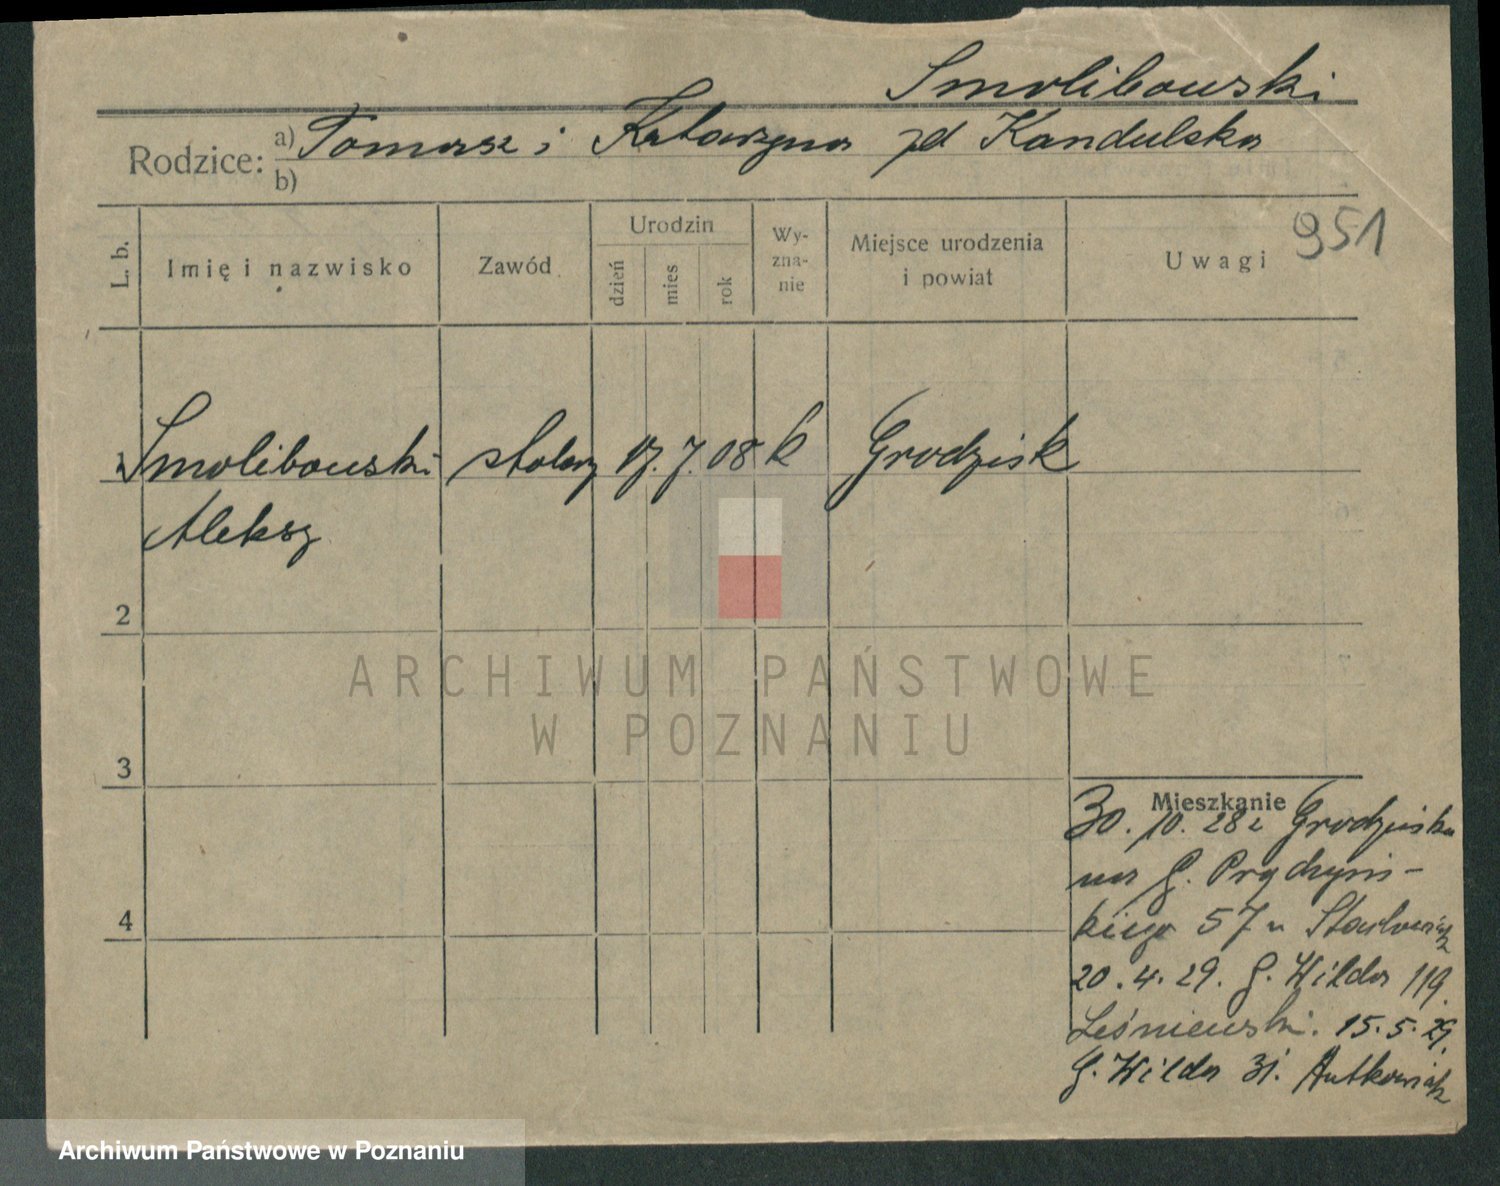 Smolibowski
Rodzice: a) Tomasz i Katarzyna zd Kandulska
b)
951
L. b.
Imię i nazwisko
Zawód
Urodzin
dzień
mies
rok
Wy-
zna-
nie
Miejsce urodzenia
i powiat
Uwagi
1 Smolibowski stolarz 17. 7. 08 k Grodzisk
Aleksy
2
3
4
ARCHIWUM PAŃSTWOWE
W POZNANIU
Mieszkanie
30. 10. 28 z Grodziska
na G. Prądzyńs-
kiego 57 u
20. 4. 29. G. Wilda 119.
Leśniewski. 15. 5. 29.
G. Wilda 31. Antkowiak
Archiwum Państwowe w Poznaniu